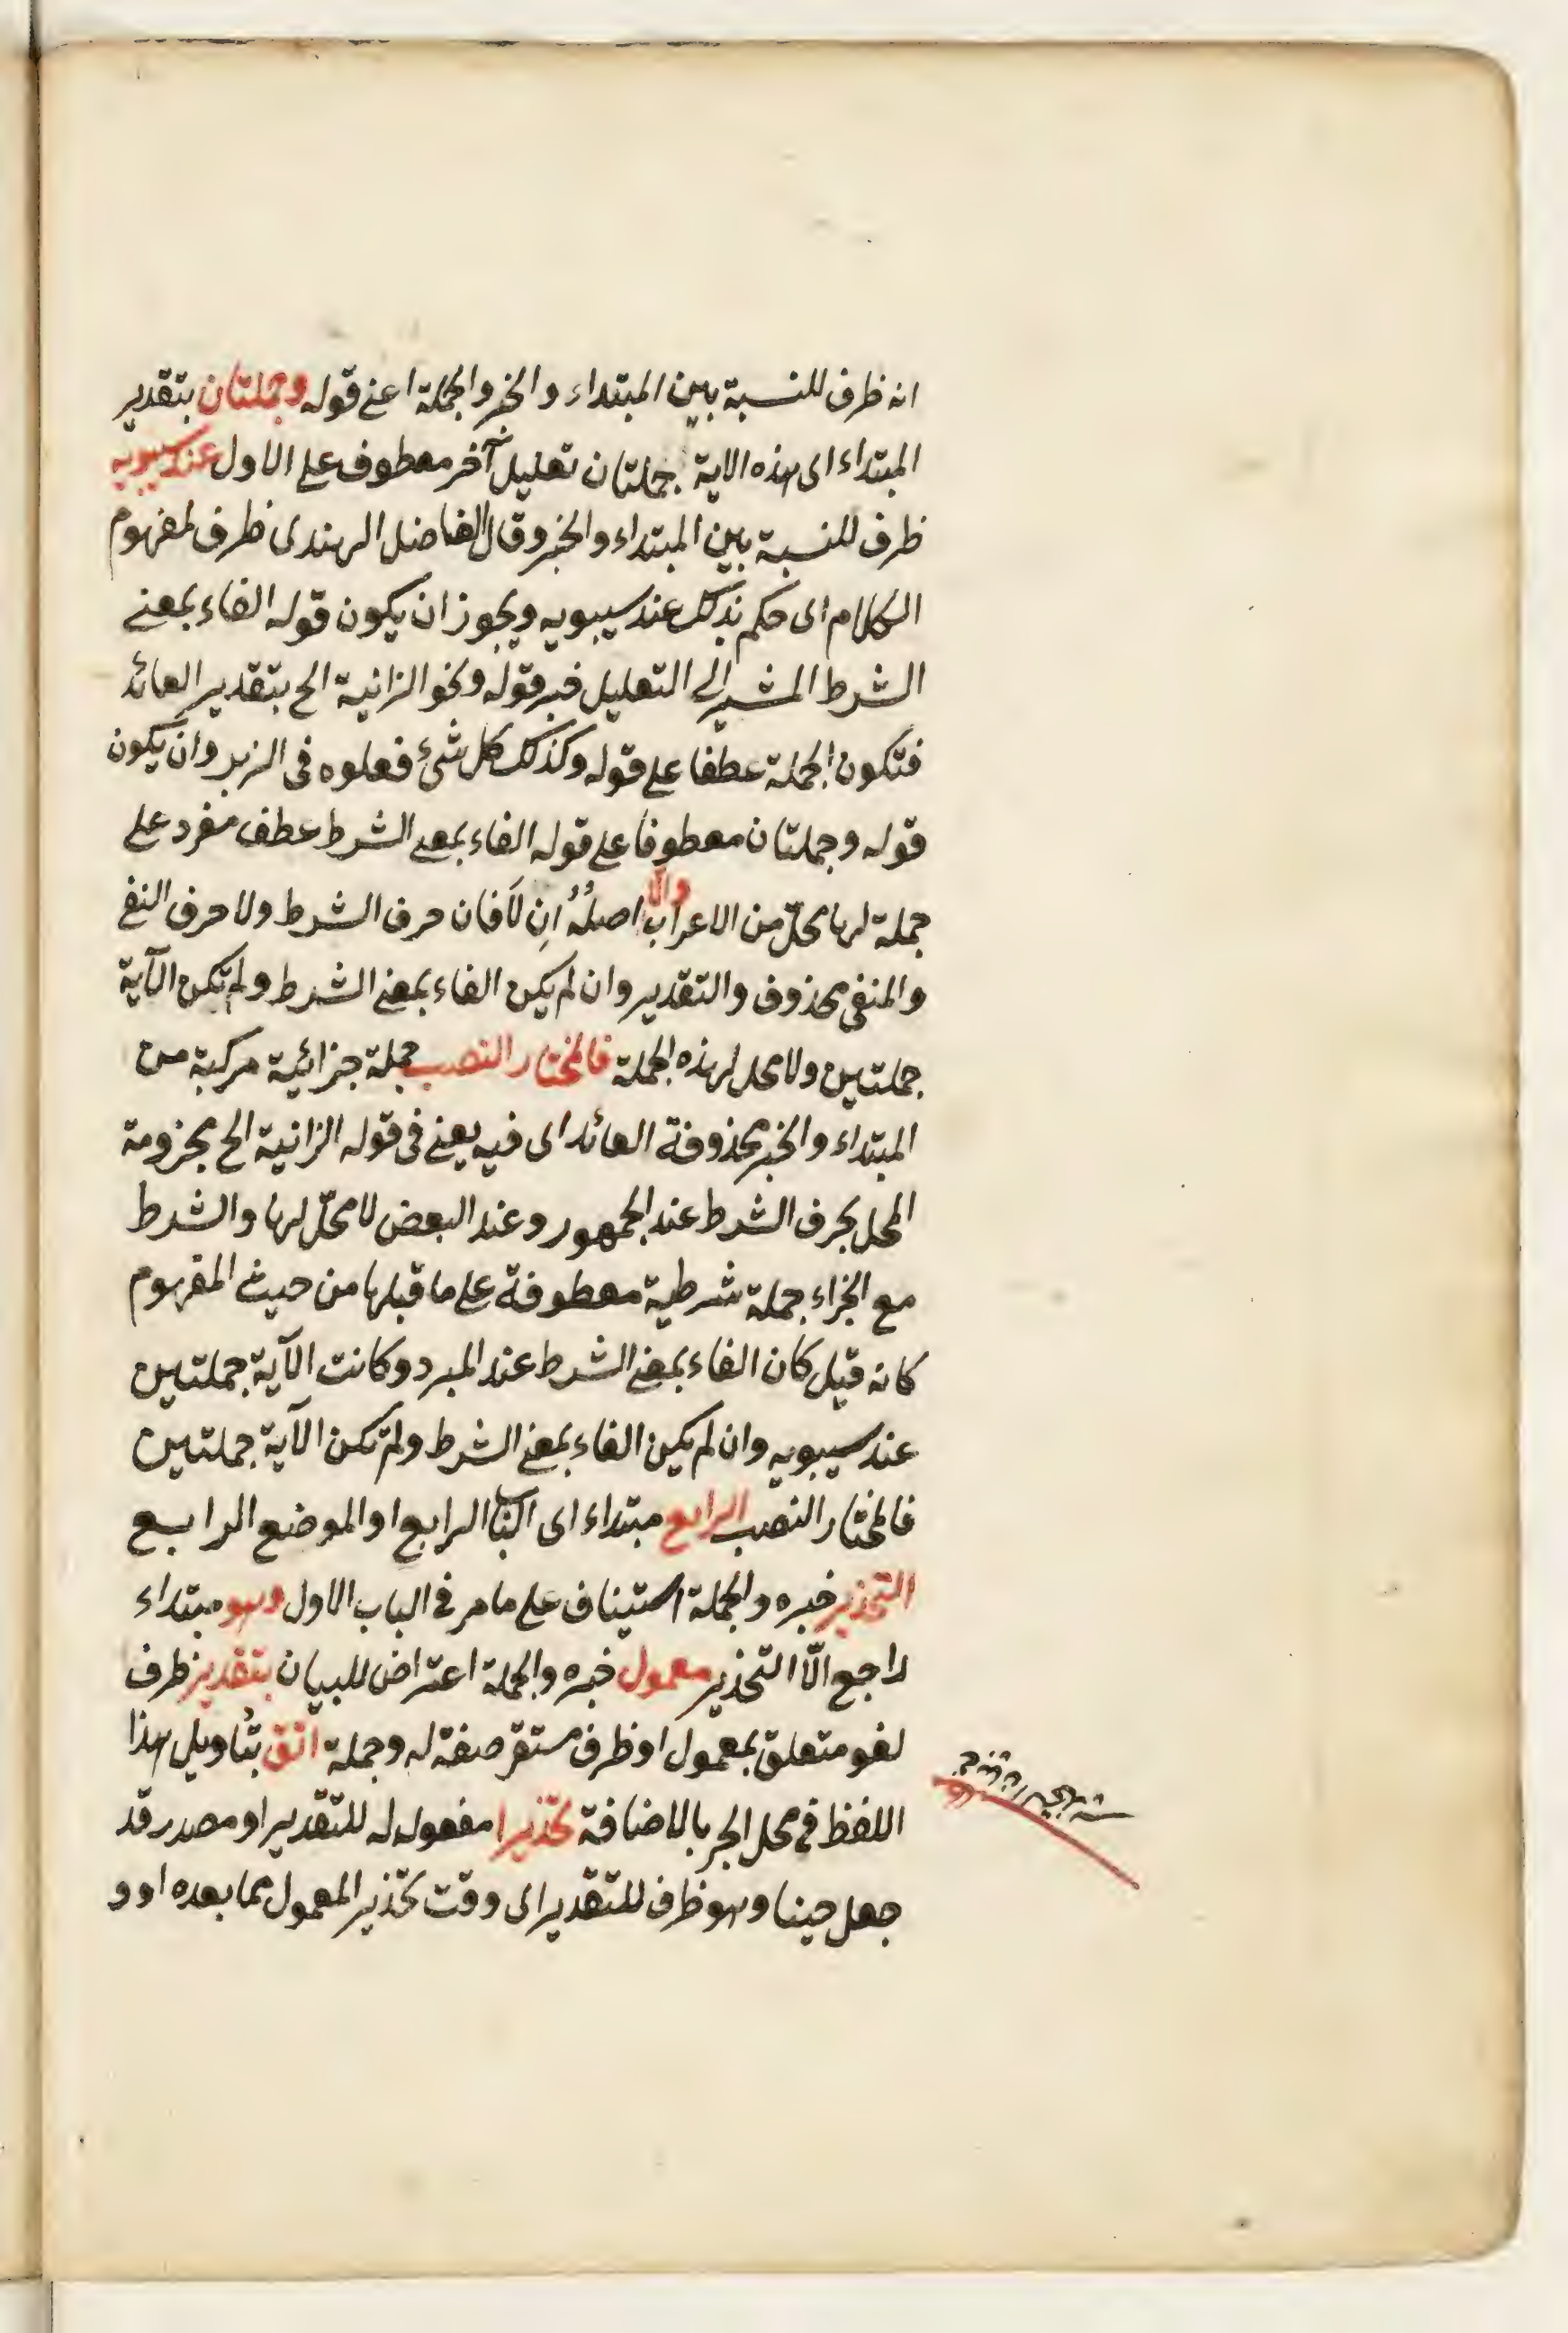 انه ظرف للنسبة بين المبتداء والخبر والجملة اعنے قوله وجملتان بتقدير
المبتداء اى هذه الاية جملتان تعليل آخر معطوف على الاول عند سيبويه
ظرف للنسبة بين المبتداء والخبر وقال الفاضل الهندى ظرف لمفهوم
الكلام اى حكم بذلك عند سيبويه ويجوز ان يكون قوله الفاء بمعنے
الشرط المشير الى التعليل خبر قوله ونحو الزانية الخ بتقدير العائد
فتكون الجملة عطفا على قوله وكذلك كل شئ فعلوه فى الزبر وان يكون
قوله وجملتان معطوفا على قوله الفاء بمعنى الشرط عطف مفرد على
جملة لها محلّ من الاعراب والّا اصلُهُ اِن لَا فان حرف الشرط ولا حرف النفى
والمنفى محذوف والتقدير وان لم يكن الفاء بمعنے الشرط ولم تكن الآية
جملتين ولا محل لهذه الجملة فالمختار النصب جملة جزائية مركبة من
المبتداء والخبر محذوفة العائد اى فيه يعنے فى قوله الزانية الخ مجزومة
المحل بحرف الشرط عند الجمهور وعند البعض لا محلّ لها والشرط
مع الجزاء جملة شرطية معطوفة على ما قبلها من حيث المفهوم
كانه قيل كان الفاء بمعنے الشرط عند المبرد وكانت الآية جملتين
عند سيبويه وان لم يكن الفاء بمعنے الشرط ولم تكن الآية جملتين
فالمختار النصب الرابع مبتداء اى الباب الرابع او الموضع الرابع
التحذير خبره والجملة استيناف على ما مر فى الباب الاول وهو مبتداء
راجع الى التحذير معمول خبره والجملة اعتراض للبيان بتقدير ظرف
لغو متعلق بمعمول او ظرف مستقر صفة له وجملة اتق بتأويل هذا
اللفظ فى محل الجر بالاضافة تحذيرا مفعول له للتقدير او مصدر قد
جعل حينا وهو ظرف للتقدير اى وقت تحذير المعمول مما بعده او و